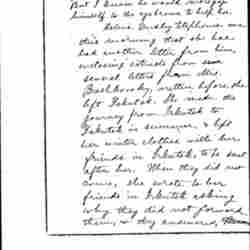 But I know he would mortgage
himself to the eyebrows to help her.
Helena Dudley telephoned me
this morning that she had
had another letter from him,
enclosing extracts from some
several letters from Mrs.
Breshkovsky, written before she
left Yakutsk. She made the
journey from Irkutsk to
Yakutsk in summer, & left
her winter clothes with her
friends in Irkutsk, to be sent
after her. When they did not
come, she wrote to her
friends in Irkutsk asking
why they did not forward
them, & they answered,